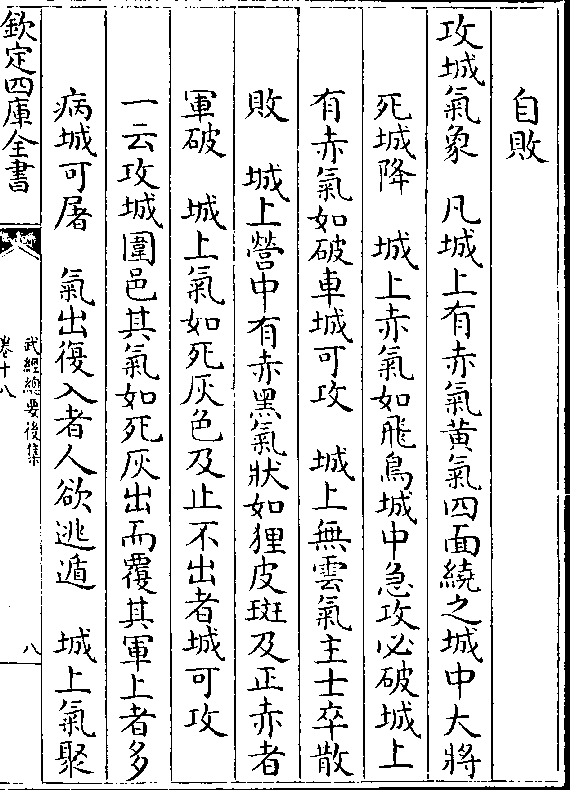 自敗
攻城氣象　凡城上有赤氣黃氣四面繞之城中大將
死城降　城上赤氣如飛鳥城中急攻必破城上
有赤氣如破車城可攻　城上無雲氣主士卒散
敗　城上營中有赤黑氣狀如狸皮斑及正赤者
軍破　城上氣如死灰色及止不出者城可攻
一云攻城圍邑其氣如死灰出而覆其軍上者多
病城可屠　氣出復入者人欲逃遁　城上氣聚
欽定四庫全書
武經總要後集
卷十八
八